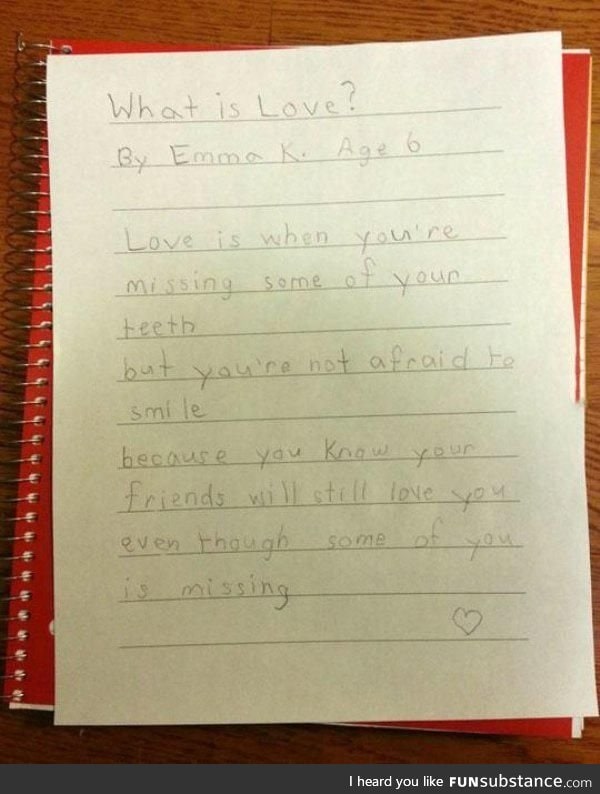 What is Love?
By Emma K. Age 6
Love is when you're
missing some of your
teeth
but you're not afraid to
smile
because you know your
friends will still love you
even though some of you
is missing
I heard you like FUNsubstance.com